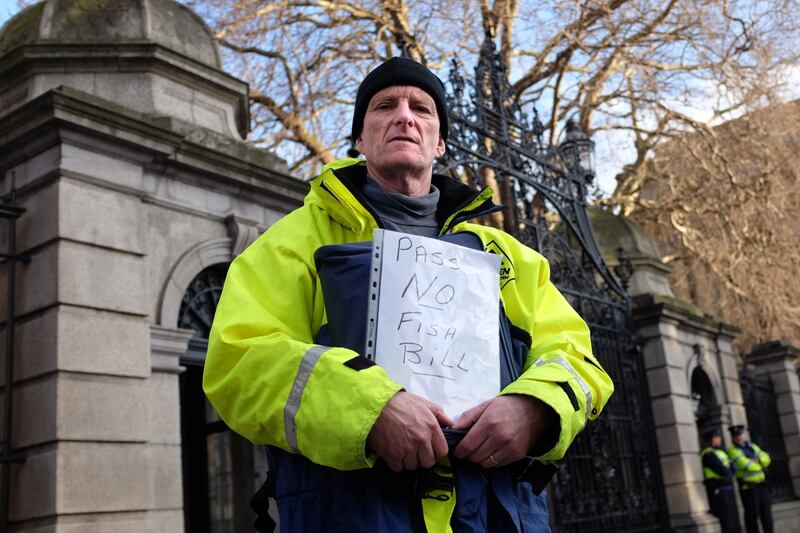 PASS
NO
FISH
BILL